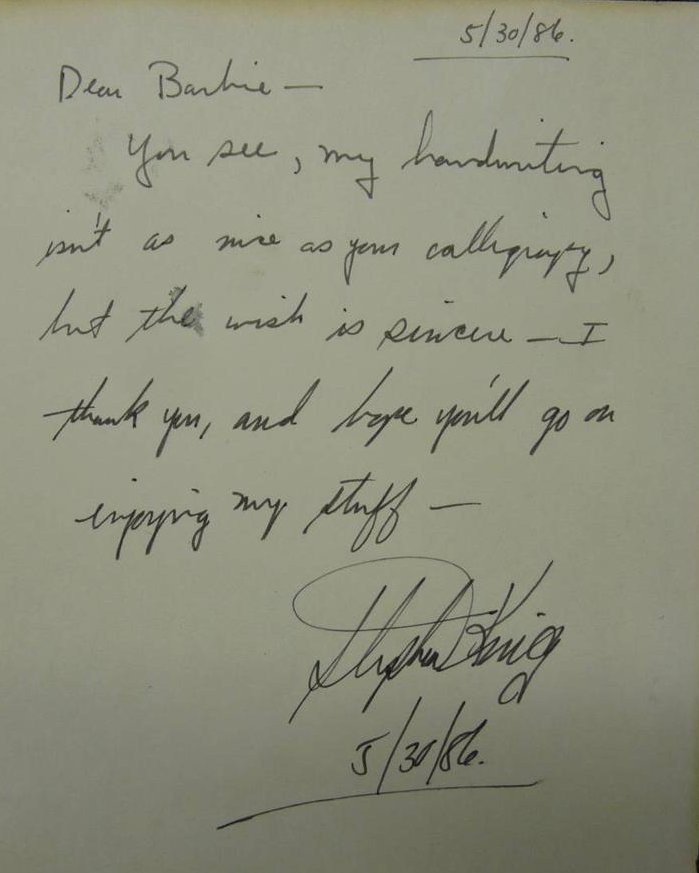 5/30/86.
Dear Barbie —
You see, my handwriting
isn't as nice as your calligrapy,
but the wish is sincere — I
thank you, and hope you'll go on
enjoying my stuff —
Stephen King
5/30/86.